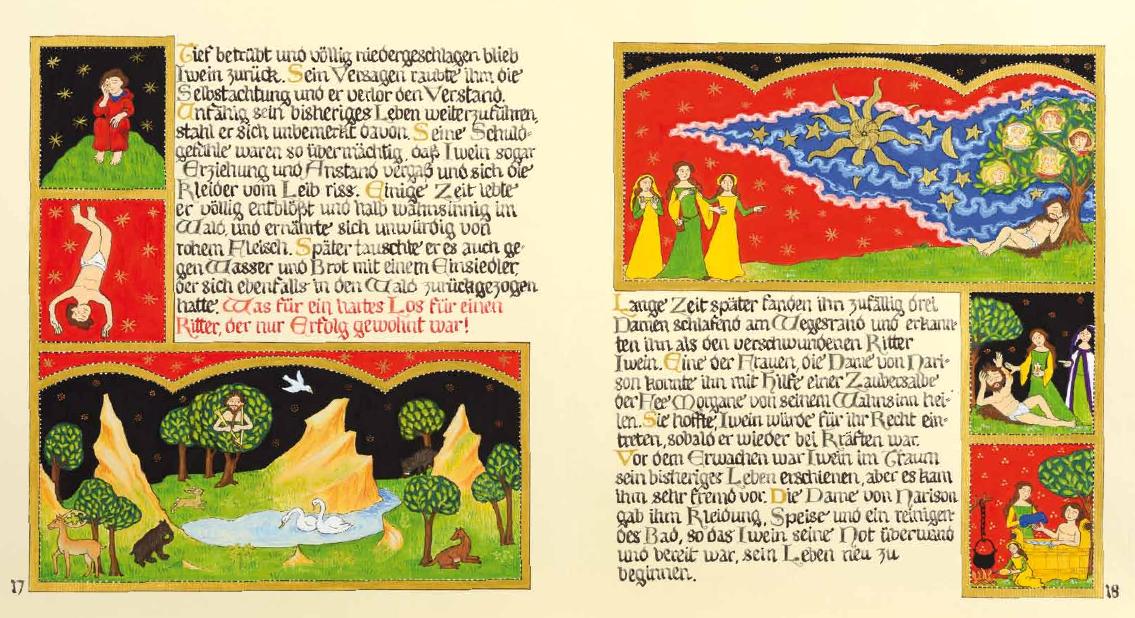 Tief betrübt und völlig niedergeschlagen blieb
Iwein zurück. Sein Versagen raubte ihm die
Selbstachtung und er verlor den Verstand.
Unfähig sein bisheriges Leben weiterzuführen,
stahl er sich unbemerkt davon. Seine Schuld-
gefühle waren so übermächtig, daß Iwein sogar
Erziehung und Anstand vergaß und sich die
Kleider vom Leib riss. Einige Zeit lebte
er völlig entblößt und halb wahnsinnig im
Wald, und ernährte sich unwürdig von
rohem Fleisch. Später tauschte er es auch ge-
gen Wasser und Brot mit einem Einsiedler,
der sich ebenfalls in den Wald zurückgezogen
hatte. Was für ein hartes Los für einen
Ritter, der nur Erfolg gewohnt war!
17
Lange Zeit später fanden ihn zufällig drei
Damen schlafend am Wegesrand und erkann-
ten ihn als den verschwundenen Ritter
Iwein. Eine der Frauen, die Dame von Nari-
son konnte ihn mit Hilfe einer Zaubersalbe
der Fee Morgane von seinem Wahnsinn hei-
len. Sie hoffte, Iwein würde für ihr Recht ein-
treten, sobald er wieder bei Kräften war.
Vor dem Erwachen war Iwein im Traum
sein bisheriges Leben erschienen, aber es kam
ihm sehr fremd vor. Die Dame von Narison
gab ihm Kleidung, Speise und ein reinigen-
des Bad, so das Iwein seine Not überwand
und bereit war, sein Leben neu zu
beginnen.
18